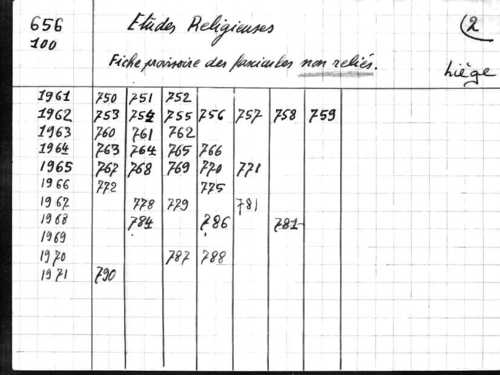 656 Etudes Religieuses (2
100
Fiche provisoire des fascicules non reliés. Liège
1961 750 751 752
1962 753 754 755 756 757 758 759
1963 760 761 762
1964 763 764 765 766
1965 767 768 769 770 771
1966 772 775
1967 778 779 781
1968 784 786 781
1969
1970 787 788
1971 790